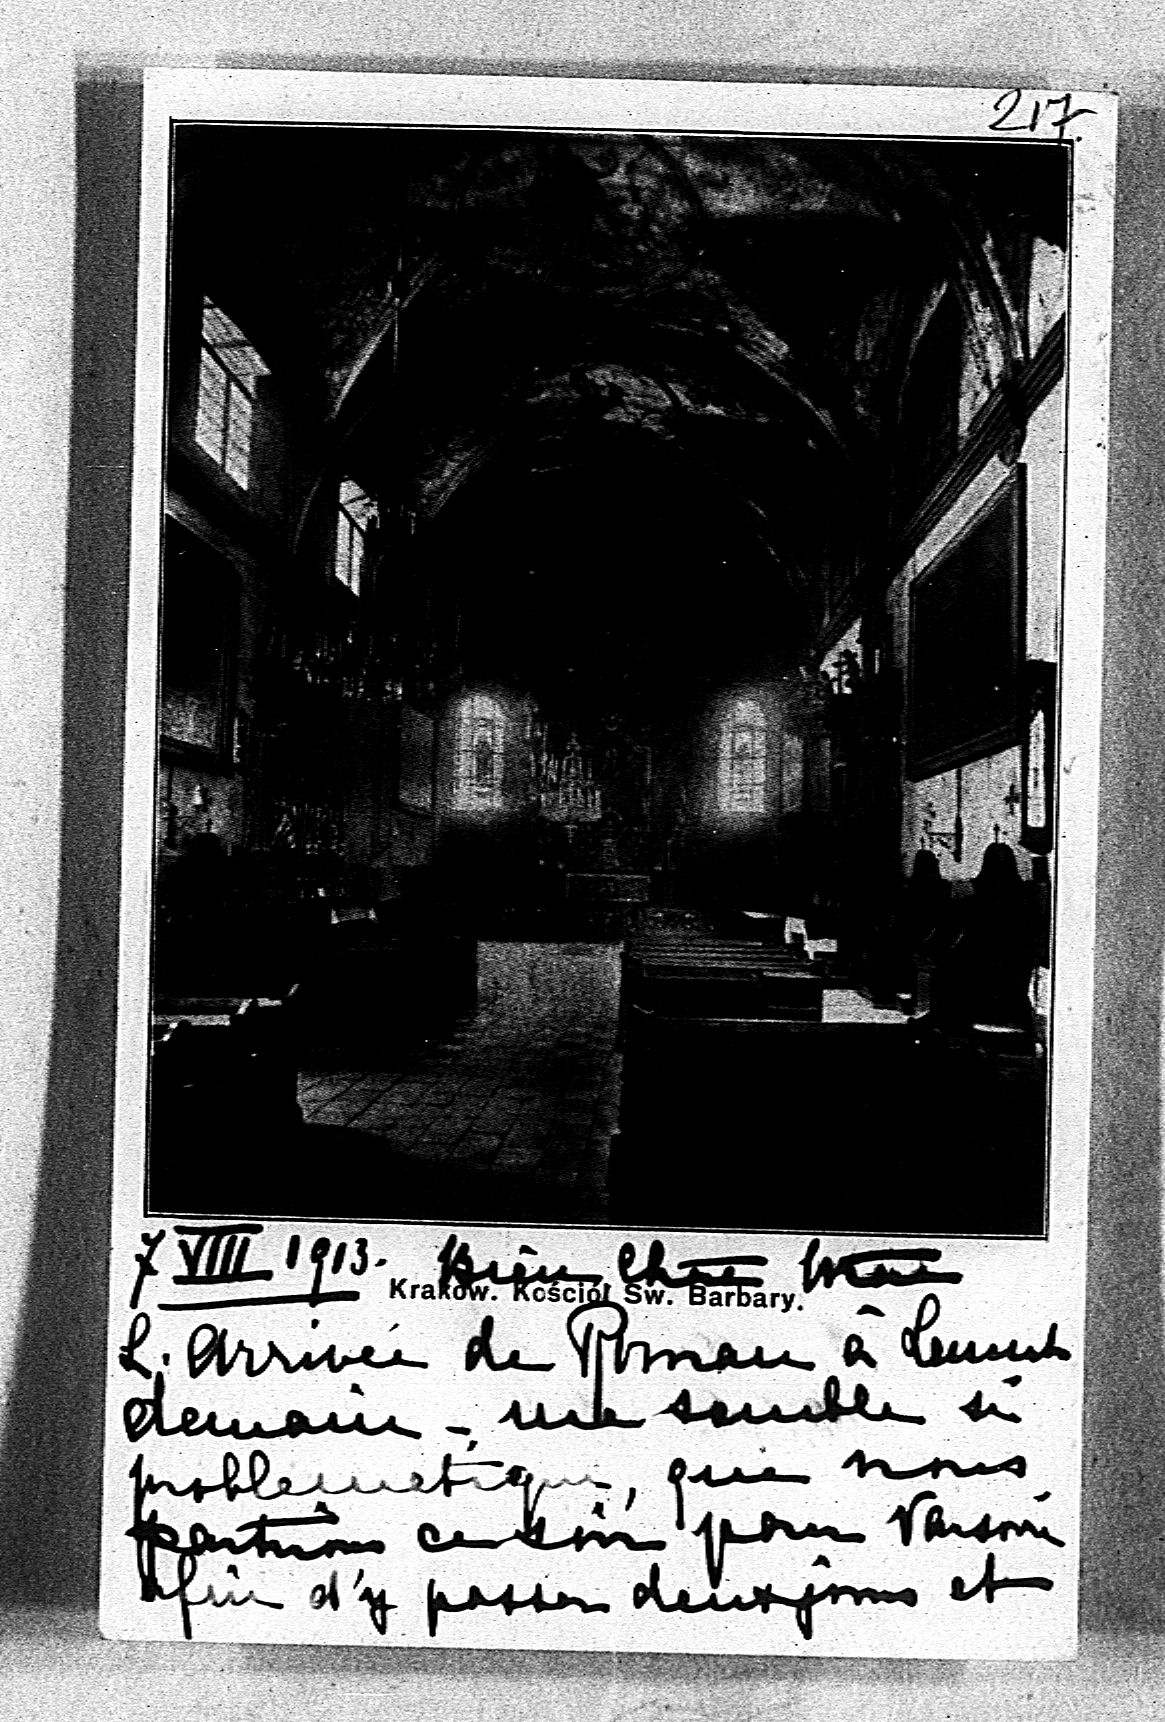 217.
7 VIII 1913. Bien Chère
Kraków. Kościół Św. Barbary.
L'arrivée de Roman à
demain -, me semble si
problématique, que nous
partirons ce soir pour Varsovie
afin d'y passer deux jours et